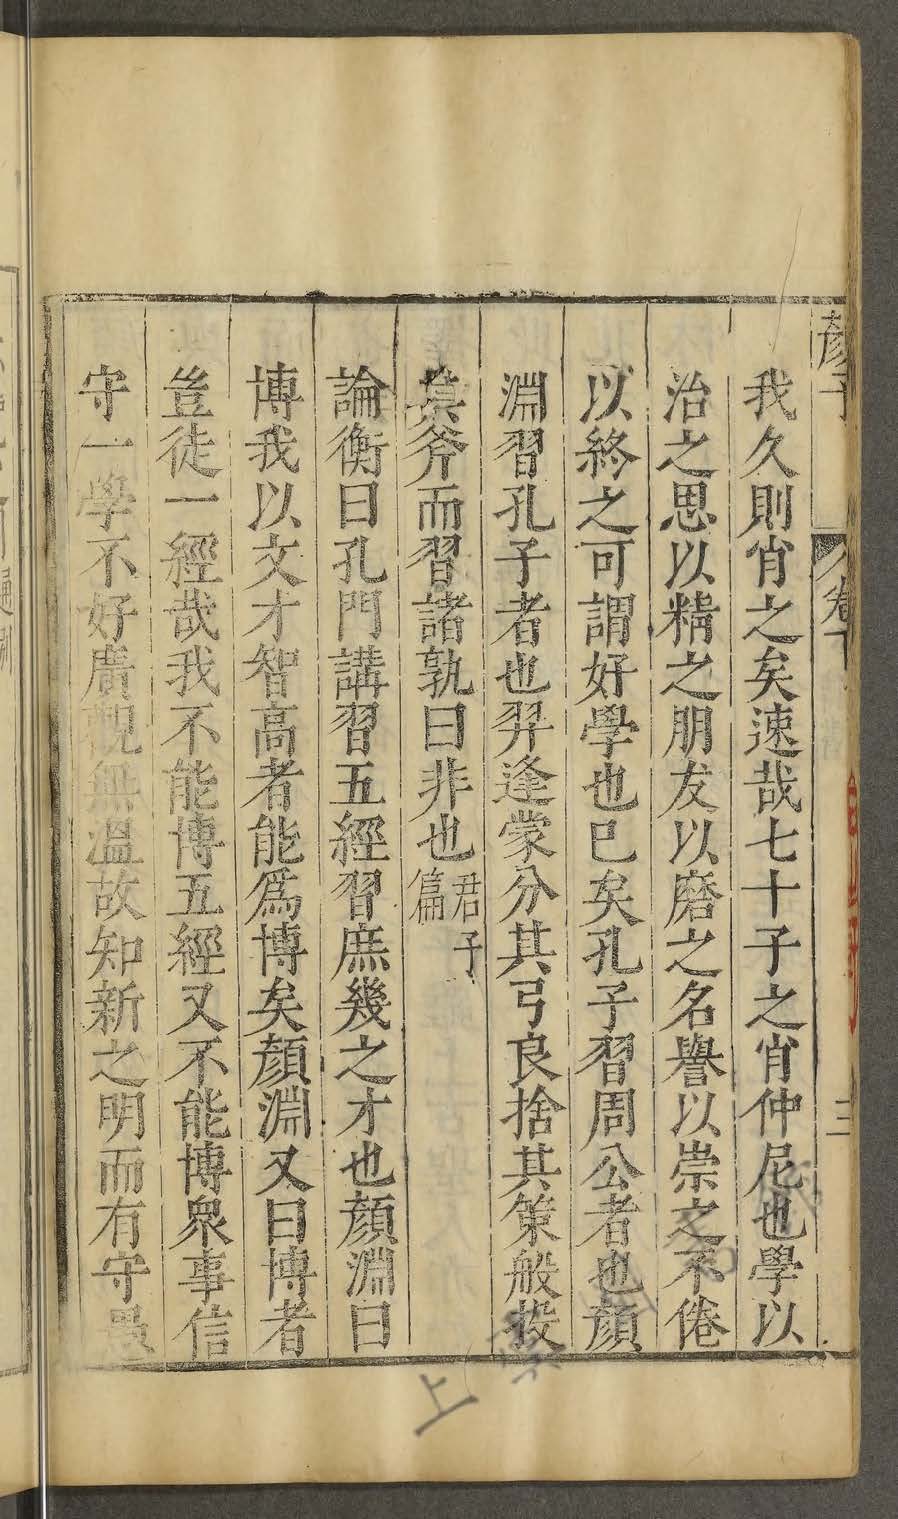 顏子
卷下
三
我久則肖之矣速哉七十子之肖仲尼也學以
治之思以精之朋友以磨之名譽以崇之不倦
以終之可謂好學也已矣孔子習周公者也顏
淵習孔子者也羿逢蒙分其弓良捨其策般投
其斧而習諸孰曰非也君子篇
論衡曰孔門講習五經習庶幾之才也顏淵曰
博我以文才智高者能爲博矣顏淵又曰博者
豈徒一經哉我不能博五經又不能博衆事信
守一學不好廣觀無溫故知新之明而有守愚